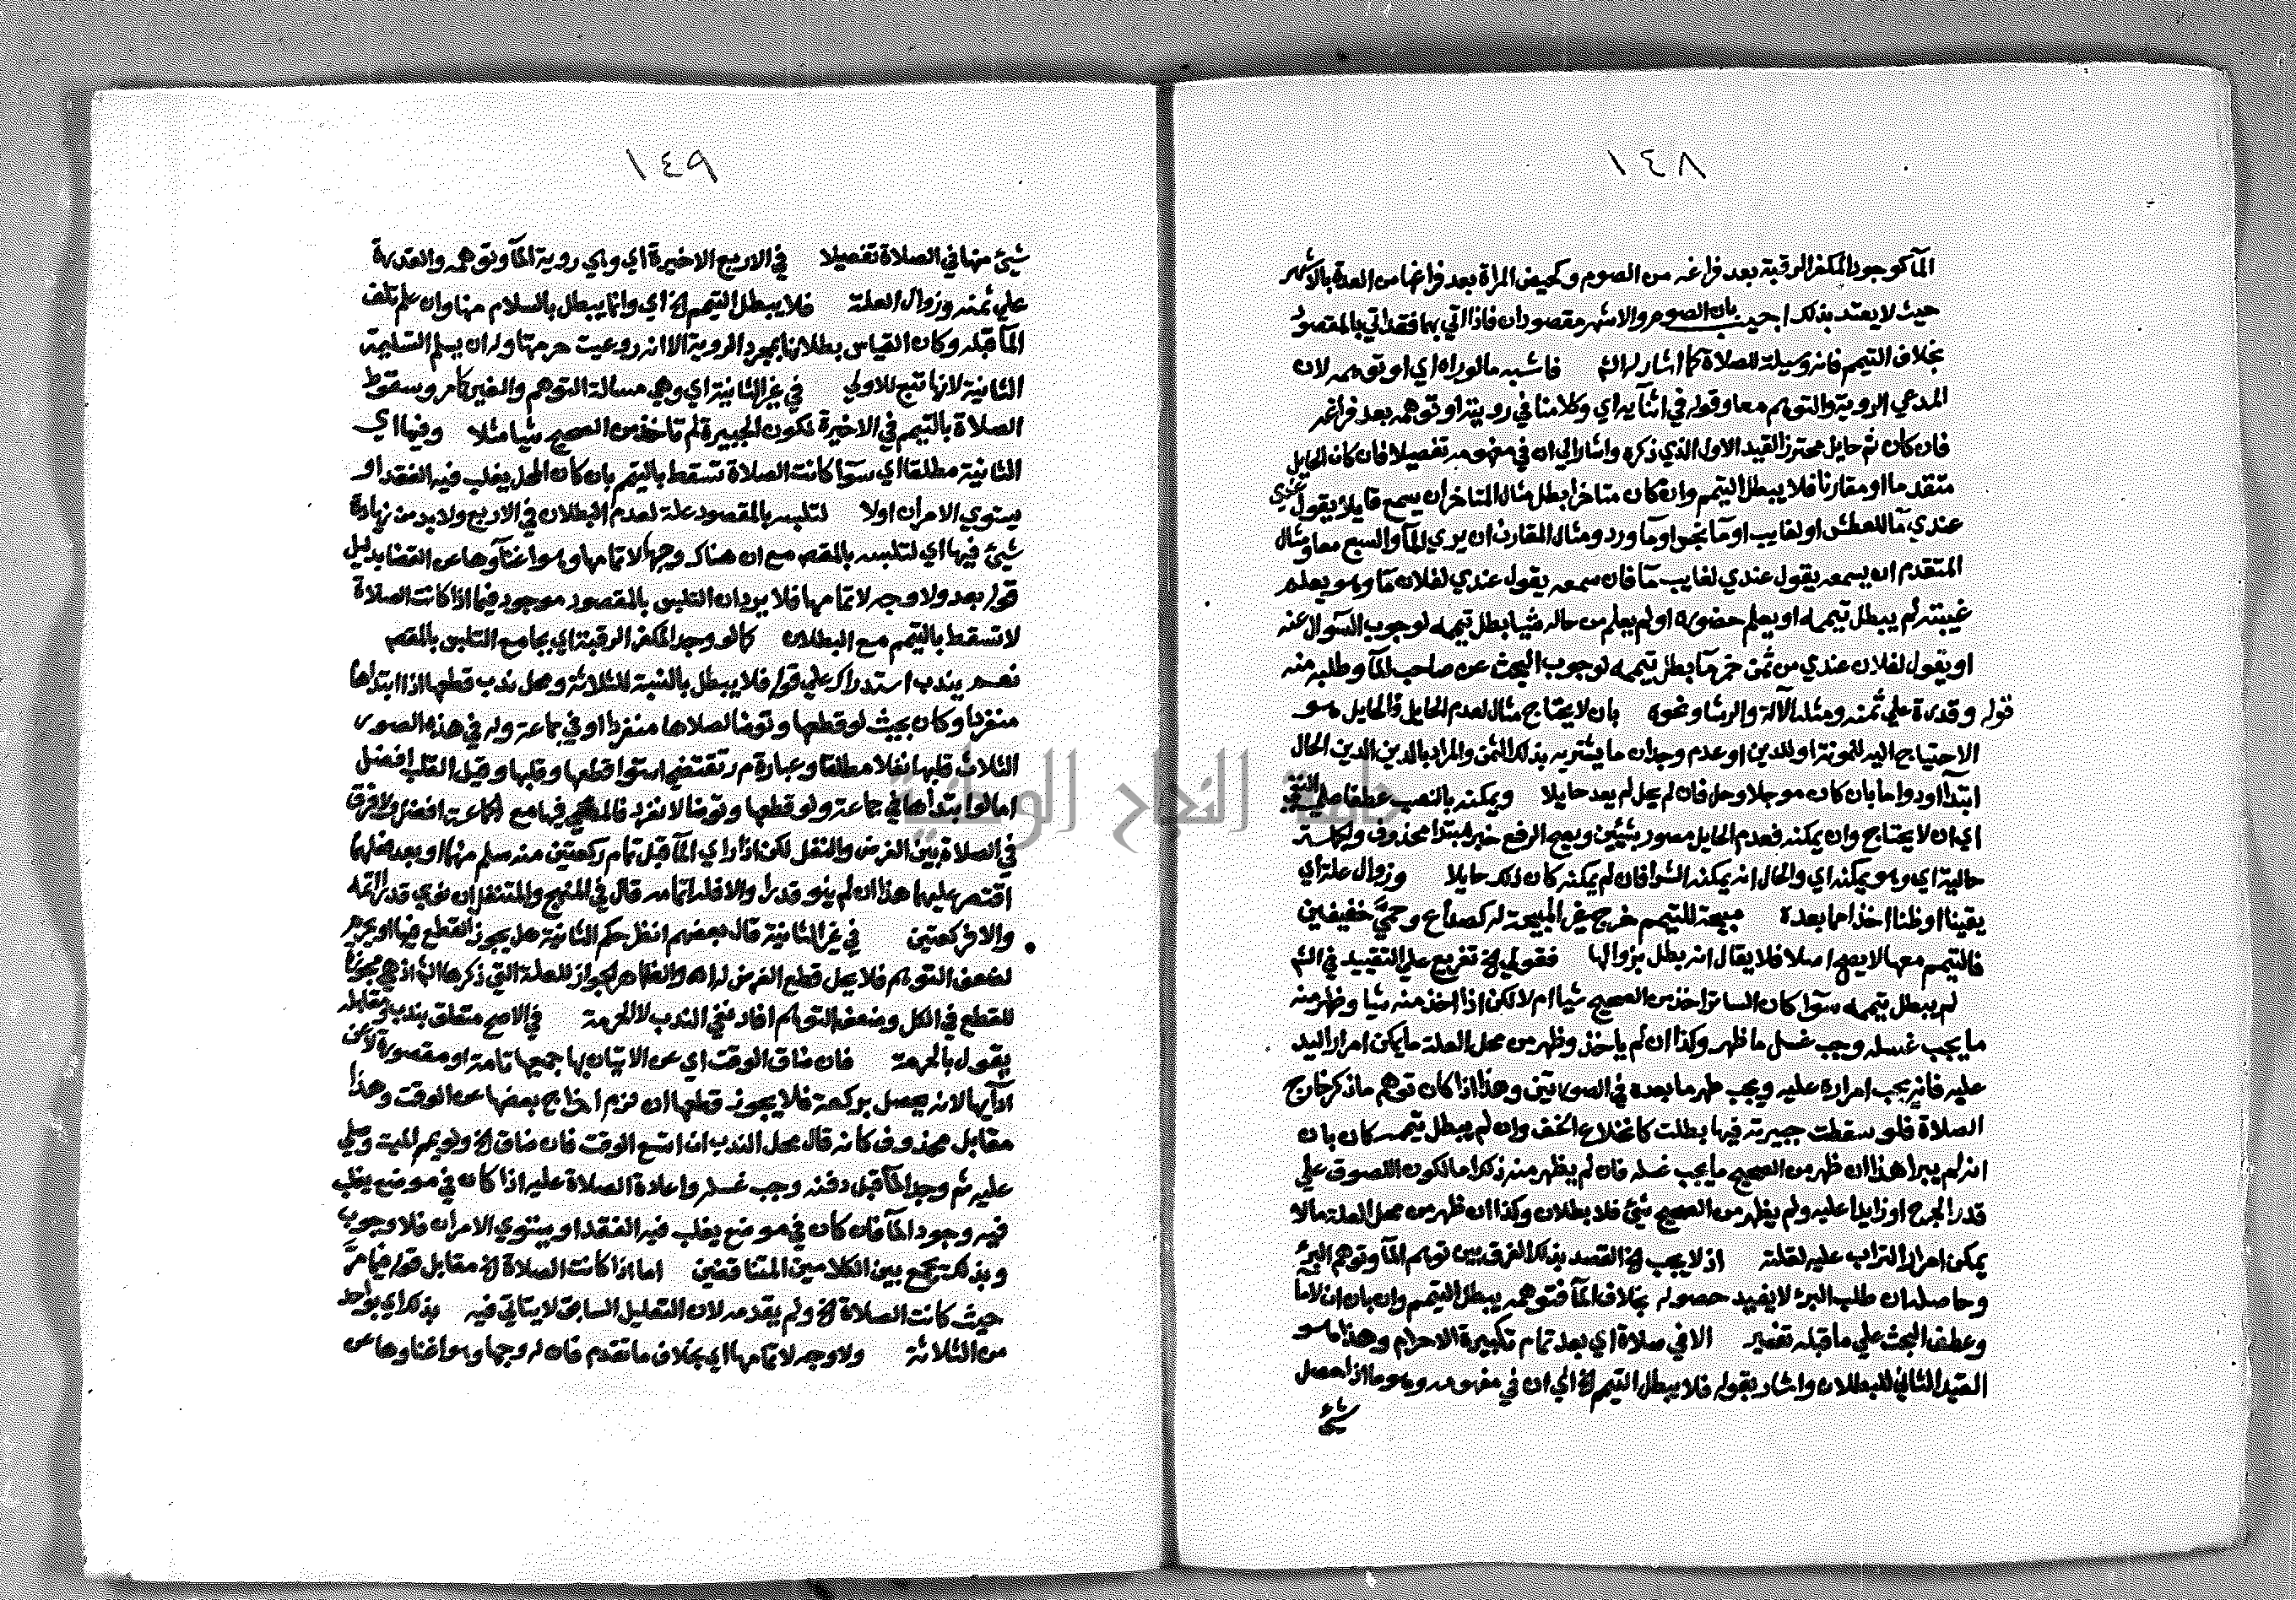 ١٤٨
المآ كوجود المكفر الرقبة بعد فراغه من الصوم وكحيض المراة بعد فراغها من العدة بالاشهر
حيث لا يعتد بذلك اجيب بان الصوم والاشهر مقصودان فاذا اتي بهما فقد اتي بالمقصود
بخلاف التيمم فانه وسيلة للصلاة كما اشار له الشم فاشبه ما لو راه اي او توهمه لان
المدعي الروية والتوهم معا وقوله في اثنآيه اي وكلامنا في رويته او توهمه بعد فراغه
فان كان ثم حايل محترز القيد الاول الذي ذكره واشار الي ان في مفهومه تفصيلا فان كان الحايل
متقدما او مقارنا فلا يبطل التيمم وان كان متاخرا بطل مثال المتاخر ان يسمع قايلا يقول عندي
عندي مآ للعطش او لغايب او مآ نجس او مآ ورد ومثال المقارن ان يري المآ والسبع معا ومثال
المتقدم ان يسمعه يقول عندي لغايب مآ فان سمعه يقول عندي لفلان مآ وهو يعلم
غيبته لم يبطل تيممه او يعلم حضوره او لم يعلم من حاله شيا بطل تيممه لوجوب السوآل عنه
او يقول لفلان عندي من ثمن خمر مآ بطل تيممه لوجوب البحث عن صاحب المآ وطلبه منه
قوله وقدرة علي ثمنه ومثله الآلة والرشا ونحوه بان لا يحتاج مثال لعدم الحايل فالحايل هو
الاحتياج اليه لمونة او لدين او عدم وجدان ما يشتريه بذلك الثمن والمراد بالدين الدين الحال
ابتدآ او دواما بان كان موجلا وحل فان لم يحل لم يعد حايلا ويمكنه بالنصب عطفا علي النفي
اي ان لا يحتاج وان يمكنه فعدم الحايل مصور بشيئين ويصح الرفع خبر مبتدا محذوف والجملة
حالية اي وهو يمكنه اي والحال انه يمكنه الشرا فان لم يمكنه كان ذلك حايلا وزوال علة اي
يقينا او ظنا اخذا مما بعده مبيحة للتيمم خرج غير المبيحة له كصداع وحمي خفيفين
فالتيمم معها لا يصح اصلا فلا يقال انه بطل بزوالها فقولي الخ تفريع علي التقييد في الشم
لم يبطل تيممه سوآ كان الساتر اخذ من الصحيح شيا ام لا لكن اذا اخذ منه شيا وظهر منه
ما يجب غسله وجب غسل ما ظهر وكذا ان لم ياخذ وظهر من محل العلة ما يمكن امرار اليد
عليه فانه يجب امراره عليه ويجب طهر ما بعده في الصورتين وهذا اذا كان توهم ما ذكر خارج
الصلاة فلو سقطت جبيرته فيها بطلت كانخلاع الخف وان لم يبطل تيممه كان بان
انه لم يبرا هذا ان ظهر من الصحيح ما يجب غسله فان لم يظهر منه ذلك اما لكون اللصوق علي
قدر الجرح او زايدا عليه ولم يظهر من الصحيح شيئ فلا بطلان وكذا ان ظهر من محل العلة ما لا
يمكن امرار التراب عليه لقلته اذ لا يجب الخ القصد بذلك الفرق بين توهم المآ وتوهم البرئ
وحاصله ان طلب البرئ لا يفيد حصوله بخلاف المآ فتوهمه يبطل التيمم وان بان ان لا مآ
وعطف البحث علي ما قبله تفسير الا في صلاة اي بعد تمام تكبيرة الاحرام وهذا هو
القيد الثاني للبطلان واشار بقوله فلا يبطل التيمم الخ الي ان في مفهومه وهو ما اذا حصل
شيئ
١٤٩
شيئ منها في الصلاة تفصيلا في الاربع الاخيرة اي واي روية المآ وتوهمه والقدرة
علي ثمنه وزوال العلة فلا يبطل التيمم الخ اي وانما يبطل بالسلام منها وان علم تلف
المآ قبله وكان القياس بطلانها بمجرد الروية الا انه روعيت حرمتها وله ان يسلم التسليمة
الثانية لانها تبع للاولي في غير الثانية اي وهي مسالة التوهم والغير كما مر وسقوط
الصلاة بالتيمم في الاخيرة لكون الجبيرة لم تاخذ من الصحيح شيا مثلا وفيها اي
الثانية مطلقا اي سوآ كانت الصلاة تسقط بالتيمم بان كان المحل يغلب فيه الفقد او
يستوي الامران اولا لتلبسه بالمقصود علة لعدم البطلان في الاربع ولا بد من زيادة
شيئ فيها اي لتلبسه بالمقصد مع ان هناك وجها لاتمامها وهو اغنآوها عن القضا بدليل
قوله بعد ولا وجه لاتمامها فلا يرد ان التلبس بالمقصود موجود فيما اذا كانت الصلاة
لا تسقط بالتيمم مع البطلان كما لو وجد المكفر الرقبة اي بجامع التلبس بالمقصد
نعم يندب استدراك علي قوله فلا يبطل بالنسبة للثلاثة ومحل ندب قطعها اذا ابتداها
منفردا وكان بحيث لو قطعها وتوضا لصلاها منفردا او في جماعة وله في هذه الصور
الثلاث قلبها نفلا مطلقا وعبارة م ر تقتضي استوا قطعها وقلبها وقيل القلب افضل
اما لو ابتداها في جماعة ولو قطعها وتوضا لانفرد فالمضي فيها مع الجماعة افضل ولا فرق
في الصلاة بين الفرض والنفل لكن اذا راي المآ قبل تمام ركعتين منه سلم منهما او بعد فعلهما
اقتصر عليهما هذا ان لم ينو قدرا والا فله اتمامه قال في المنهج والمتنفل ان نوي قدرا اتمه
والا فركعتين في غير الثانية قال بعضهم انظر حكم الثانية هل يجوز القطع فيها او يحرم
لضعف التوهم فلا يحل قطع الفرض له اهـ والظاهر الجواز للعلة التي ذكرها الشم اذ هي مجوزة
للقطع في الكل وضعف التوهم افاد نفي الندب لا الحرمة في الاصح متعلق بندب ومقابله
يقول بالحرمة فان ضاق الوقت اي عن الاتيان بها جميعها تامة او مقصورة لا عن
ادآيها لانه يحصل بركعة فلا يجوز قطعها ان لزم اخراج بعضها عن الوقت وهذا
مقابل محذوف كانه قال محل الندب ان اتسع الوقت فان ضاق الخ ولو يمم الميت وصلي
عليه ثم وجد المآ قبل دفنه وجب غسله واعادة الصلاة عليه اذا كان في موضع يغلب
فيه وجود المآ فان كان في موضع يغلب فيه الفقد او يستوي الامران فلا وجوب
وبذلك يجمع بين الكلامين المتناقضين اما اذا كانت الصلاة الخ مقابل قوله فيما مر
حيث كانت الصلاة الخ ولم يقدمه لان التعليل السابق لا يتاتي فيه بذلك اي بواحد
من الثلاثة ولا وجه لاتمامها اي بخلاف ما تقدم فان له وجها وهو اغناوها عن